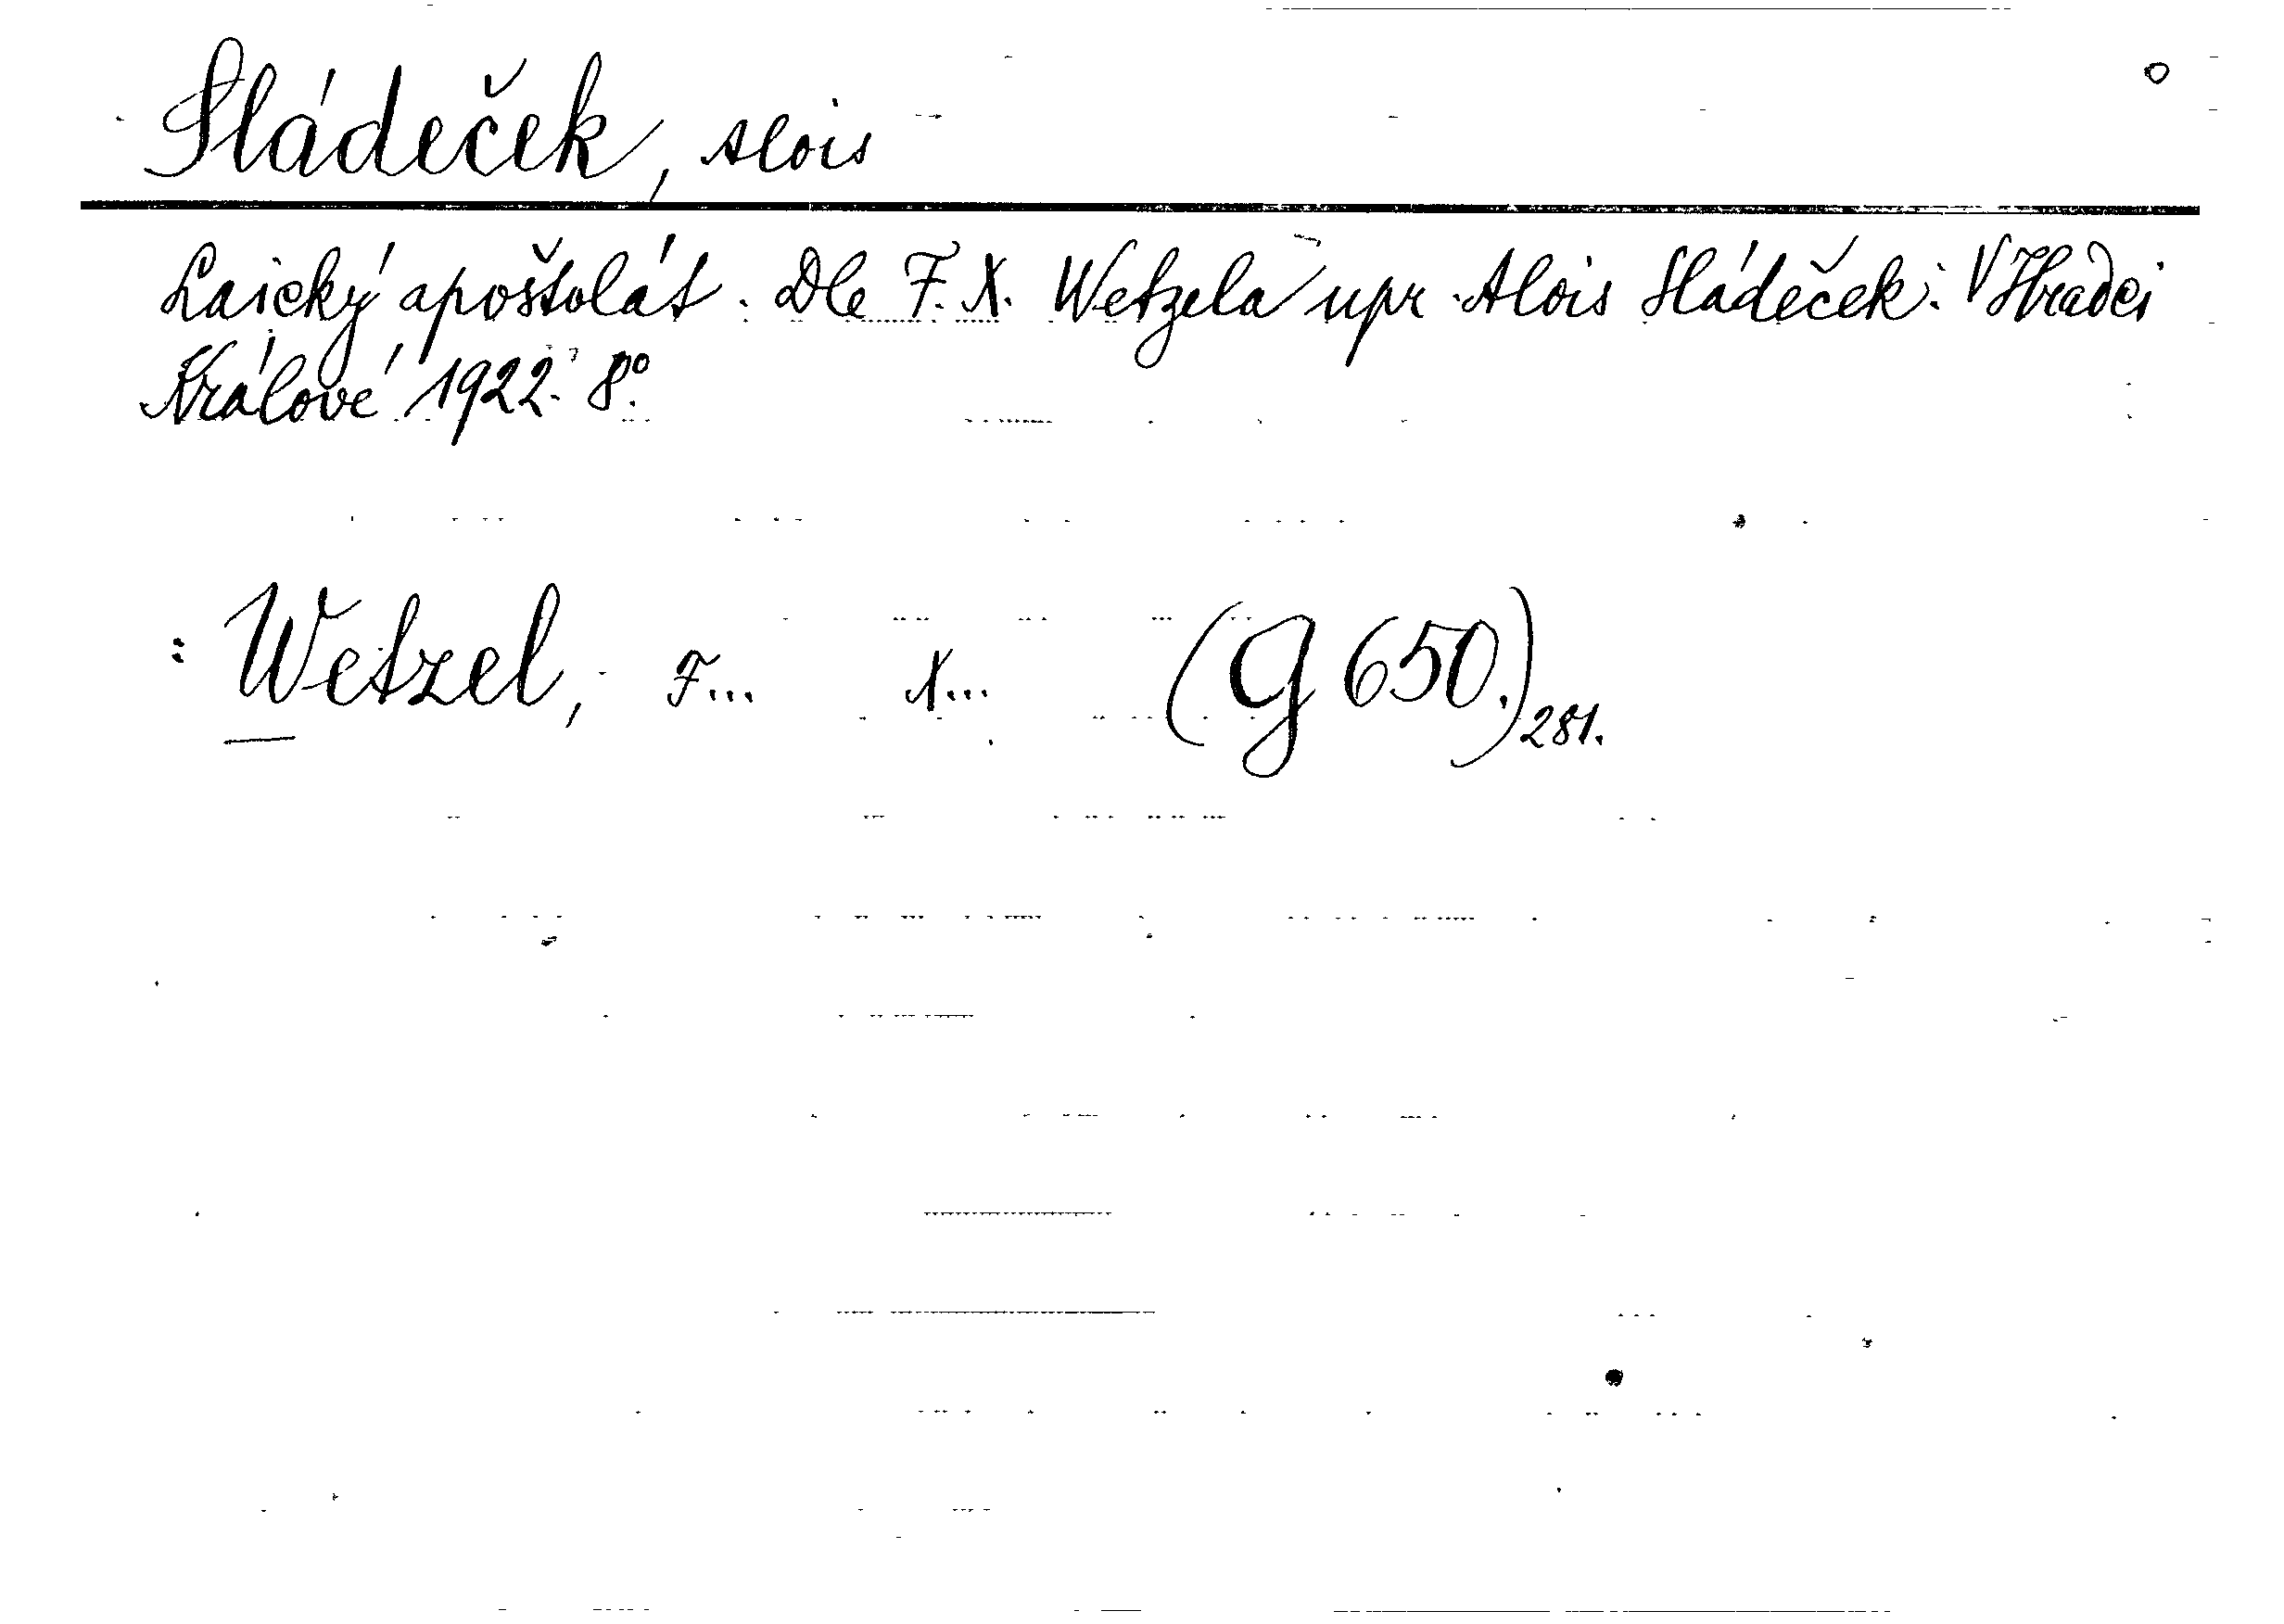 Sládeček, Alois
Laický apoštolát. Dle F. X. Wetzela upr. Alois Sládeček. V Hradci
Králové 1922. 8°.
: Wetzel, F... X... (G 650.) 281.